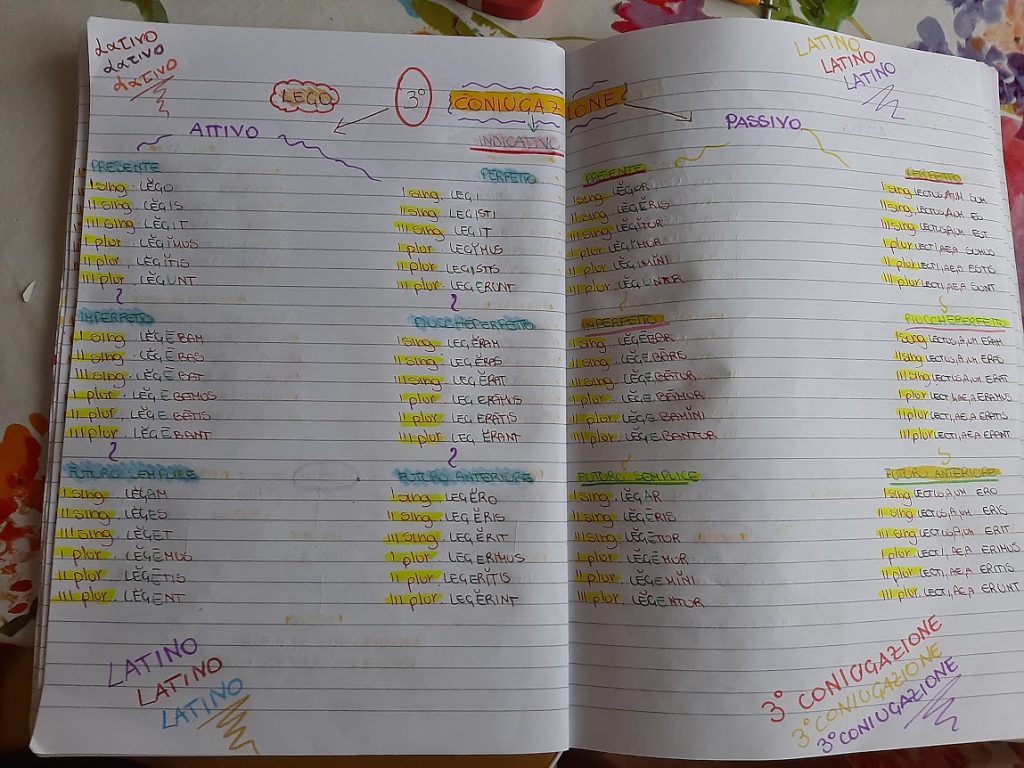 LATIVO
LATIVO
LATIVO
LATINO
LATINO
LATINO
LEGO 3° CONIUGAZIONE
INDICATIVO
ATTIVO
PRESENTE
I sing. LĔGO
II sing. LĔGIS
III sing. LĔGIT
I plur. LĔGĬMUS
II plur. LĔGĬTIS
III plur. LĔGUNT
IMPERFETTO
I sing. LĔGĒBAM
II sing. LĔGĒBAS
III sing. LĔGĒBAT
I plur. LĔGEBAMUS
II plur. LĔGEBĀTIS
III plur. LĔGĒBANT
FUTURO SEMPLICE
I sing. LĔGAM
II sing. LĔGES
III sing. LĔGET
I plur. LĔGĒMUS
II plur. LĔGĒTIS
III plur. LĔGENT
PERFETTO
I sing. LEGI
II sing. LEGISTI
III sing. LEGIT
I plur. LEGĬMUS
II plur. LEGISTIS
III plur. LEGERUNT
PIUCCHEPERFETTO
I sing. LEGĔRAM
II sing. LEGĔRAS
III sing. LEGĔRAT
I plur. LEGERĀMUS
II plur. LEGERĀTIS
III plur. LEGĔRANT
FUTURO ANTERIORE
I sing. LEGĔRO
II sing. LEGĔRIS
III sing. LEGĔRIT
I plur. LEGERIMUS
II plur. LEGERĬTIS
III plur. LEGĔRINT
PASSIVO
PRESENTE
I sing. LĔGOR
II sing. LĔGĔRIS
III sing. LĔGĬTUR
I plur. LĔGĬMUR
II plur. LĔGIMĬNI
III plur. LĔGUNTUR
IMPERFETTO
I sing. LĔGĒBAR
II sing. LĔGEBĀRIS
III sing. LĔGEBĀTUR
I plur. LĔGEBAMUR
II plur. LĔGEBAMĬNI
III plur. LĔGEBANTUR
FUTURO SEMPLICE
I sing. LĔGAR
II sing. LĔGĒRIS
III sing. LĔGĒTUR
I plur. LĔGĒMUR
II plur. LĔGEMĬNI
III plur. LĔGENTUR
PERFETTO
I sing. LECTUS,A,UM SUM
II sing. LECTUS,A,UM ES
III sing. LECTUS,A,UM EST
I plur. LECTI,AE,A SUMUS
II plur. LECTI,AE,A ESTIS
III plur. LECTI,AE,A SUNT
PIUCCHEPERFETTO
I sing. LECTUS,A,UM ERAM
II sing. LECTUS,A,UM ERAS
III sing. LECTUS,A,UM ERAT
I plur. LECTI,AE,A ERAMUS
II plur. LECTI,AE,A ERATIS
III plur. LECTI,AE,A ERANT
FUTURO ANTERIORE
I sing. LECTUS,A,UM ERO
II sing. LECTUS,A,UM ERIS
III sing. LECTUS,A,UM ERIT
I plur. LECTI,AE,A ERIMUS
II plur. LECTI,AE,A ERITIS
III plur. LECTI,AE,A ERUNT
LATINO
LATINO
LATINO
3° CONIUGAZIONE
3° CONIUGAZIONE
3° CONIUGAZIONE